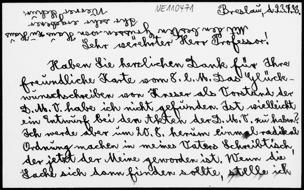 NE110471
Breslau, d. 23.7.36
Sehr verehrter Herr Professor!
Haben Sie herzlichen Dank für Ihre
freundliche Karte vom 8. l. M. Das Glück-
wunschschreiben von Kneser als Vorstand der
D.M.V. habe ich nicht gefunden. Ist vielleicht
ein Entwurf bei den Akten der D.M.V. zu haben?
Ich werde aber um 20. 8. herum einmal radikal
Ordnung machen in meines Vaters Schreibtisch,
der jetzt der Meine geworden ist. Wenn die
Sache sich dann finden sollte, stelle ich
Mit den besten